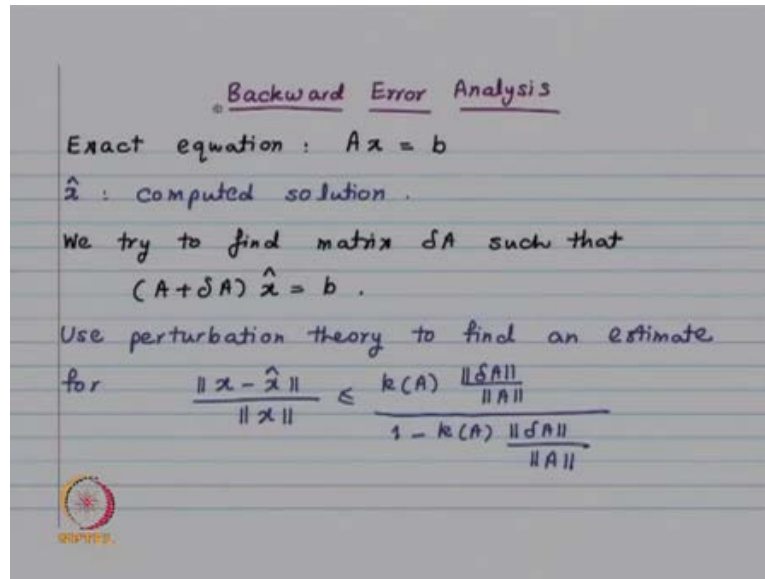 Backward Error Analysis
Exact equation : Ax = b
x̂ : computed solution .
We try to find matrix δA such that
(A + δA) x̂ = b .
Use perturbation theory to find an estimate
for ‖x - x̂‖ / ‖x‖ ≤ k(A) ‖δA‖ / ‖A‖ / 1 - k(A) ‖δA‖ / ‖A‖